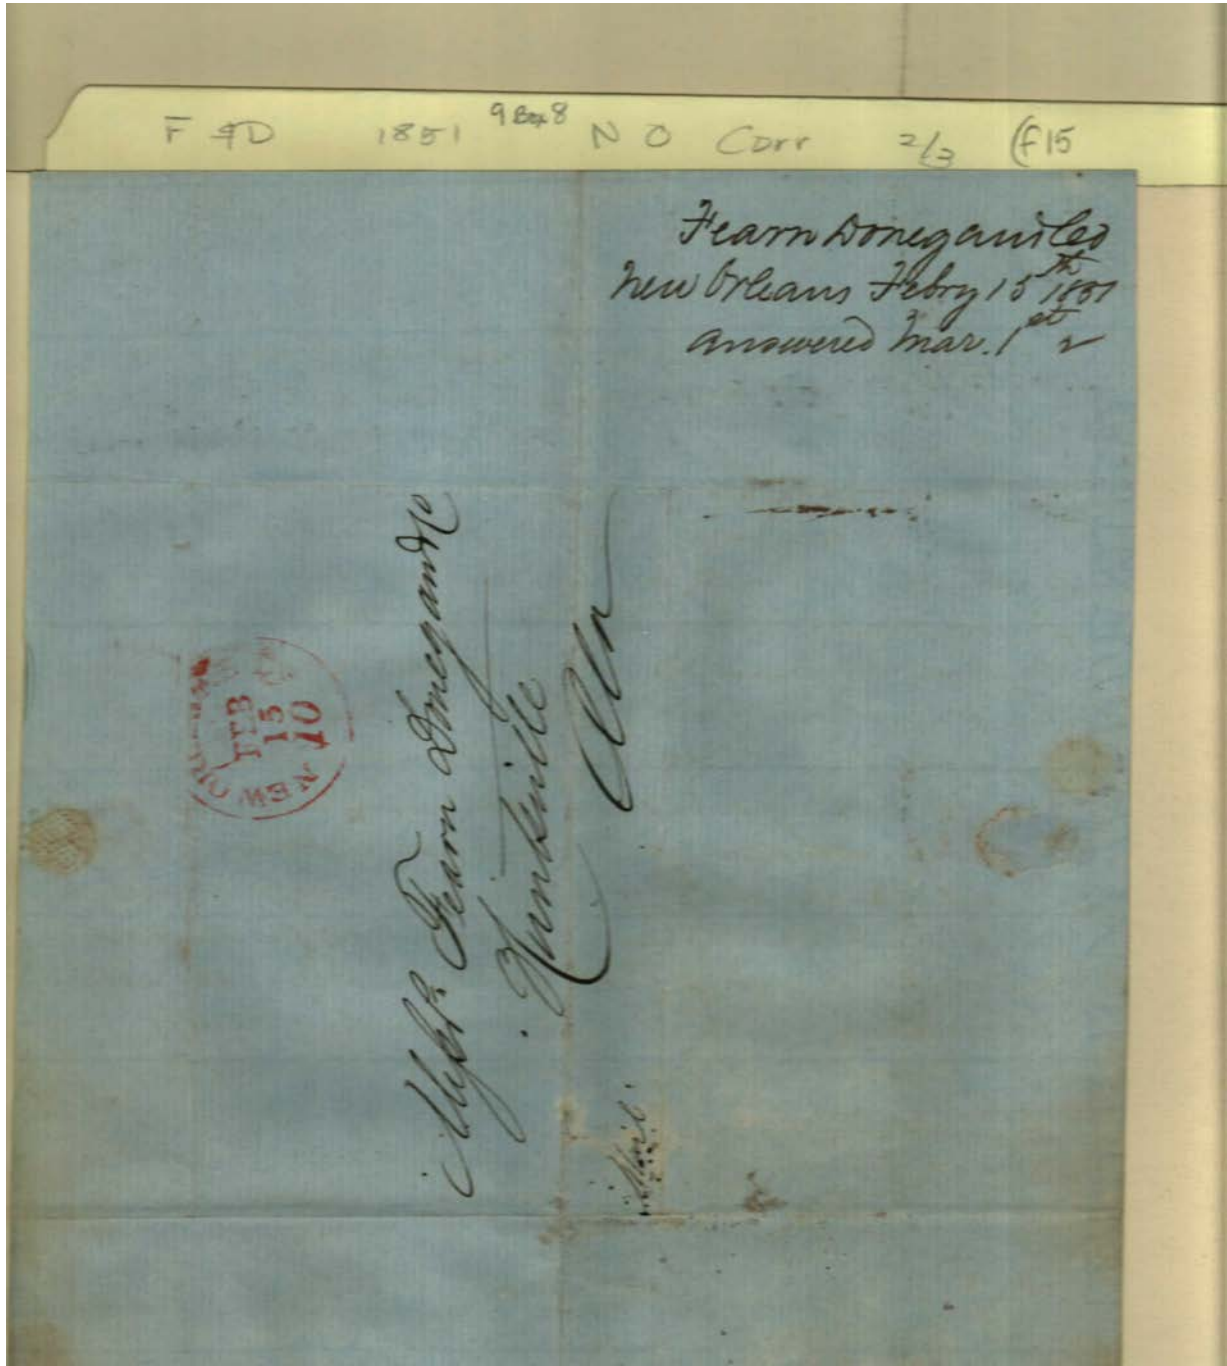 F & D 1851 9 Box 8 N O Corr 2/3 (F15
Fearn Donegan & Co
New Orleans Febry 15th 1851
answered Mar. 1st
NEW
FEB
15
10
Messrs. Fearn Donegan & Co
Huntsville
Ala
Mail